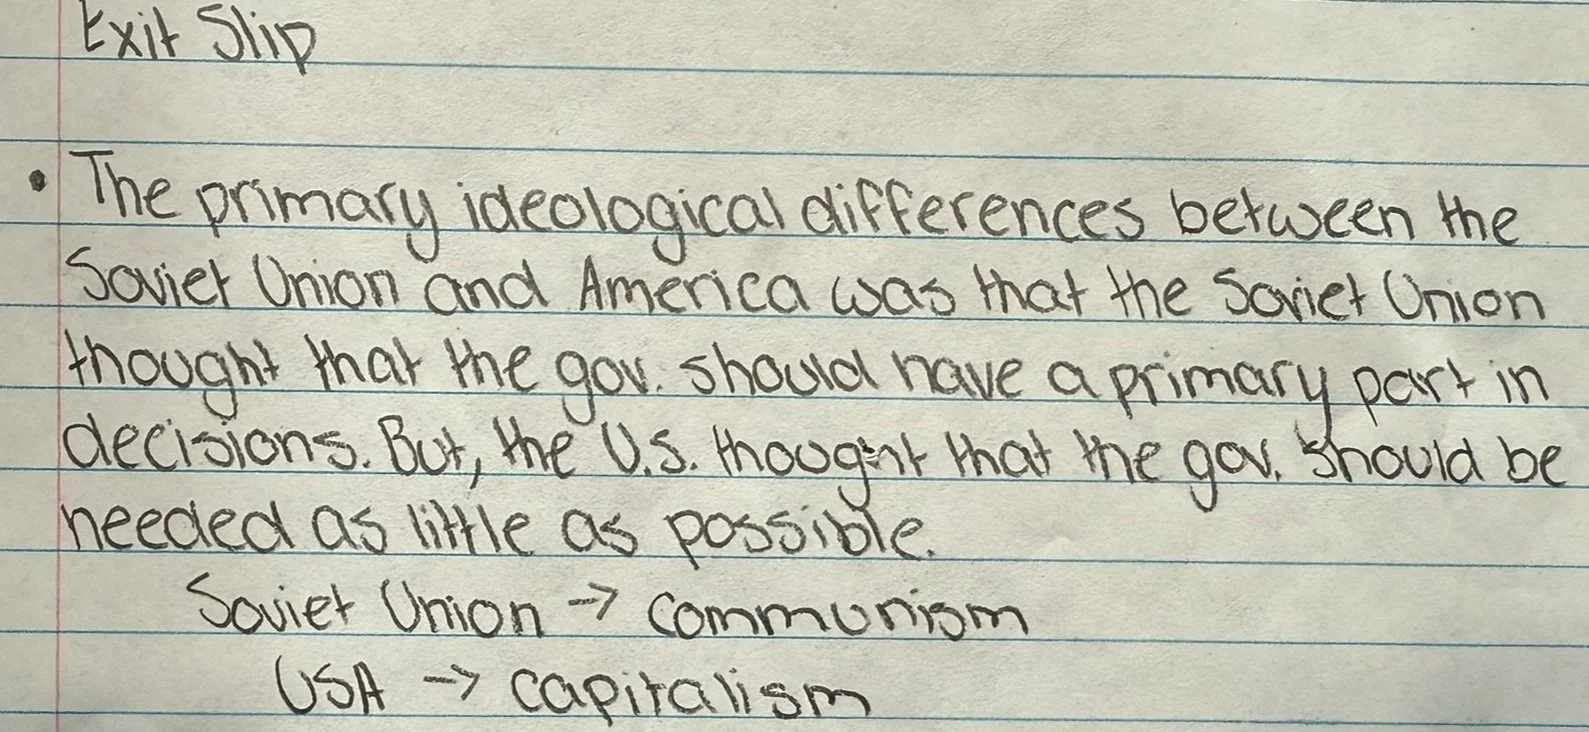 Exit Slip
• The primary ideological differences between the
Soviet Union and America was that the Soviet Union
thought that the gov. should have a primary part in
decisions. But, the U.S. thought that the gov. should be
needed as little as possible.
Soviet Union → communism
USA → capitalism